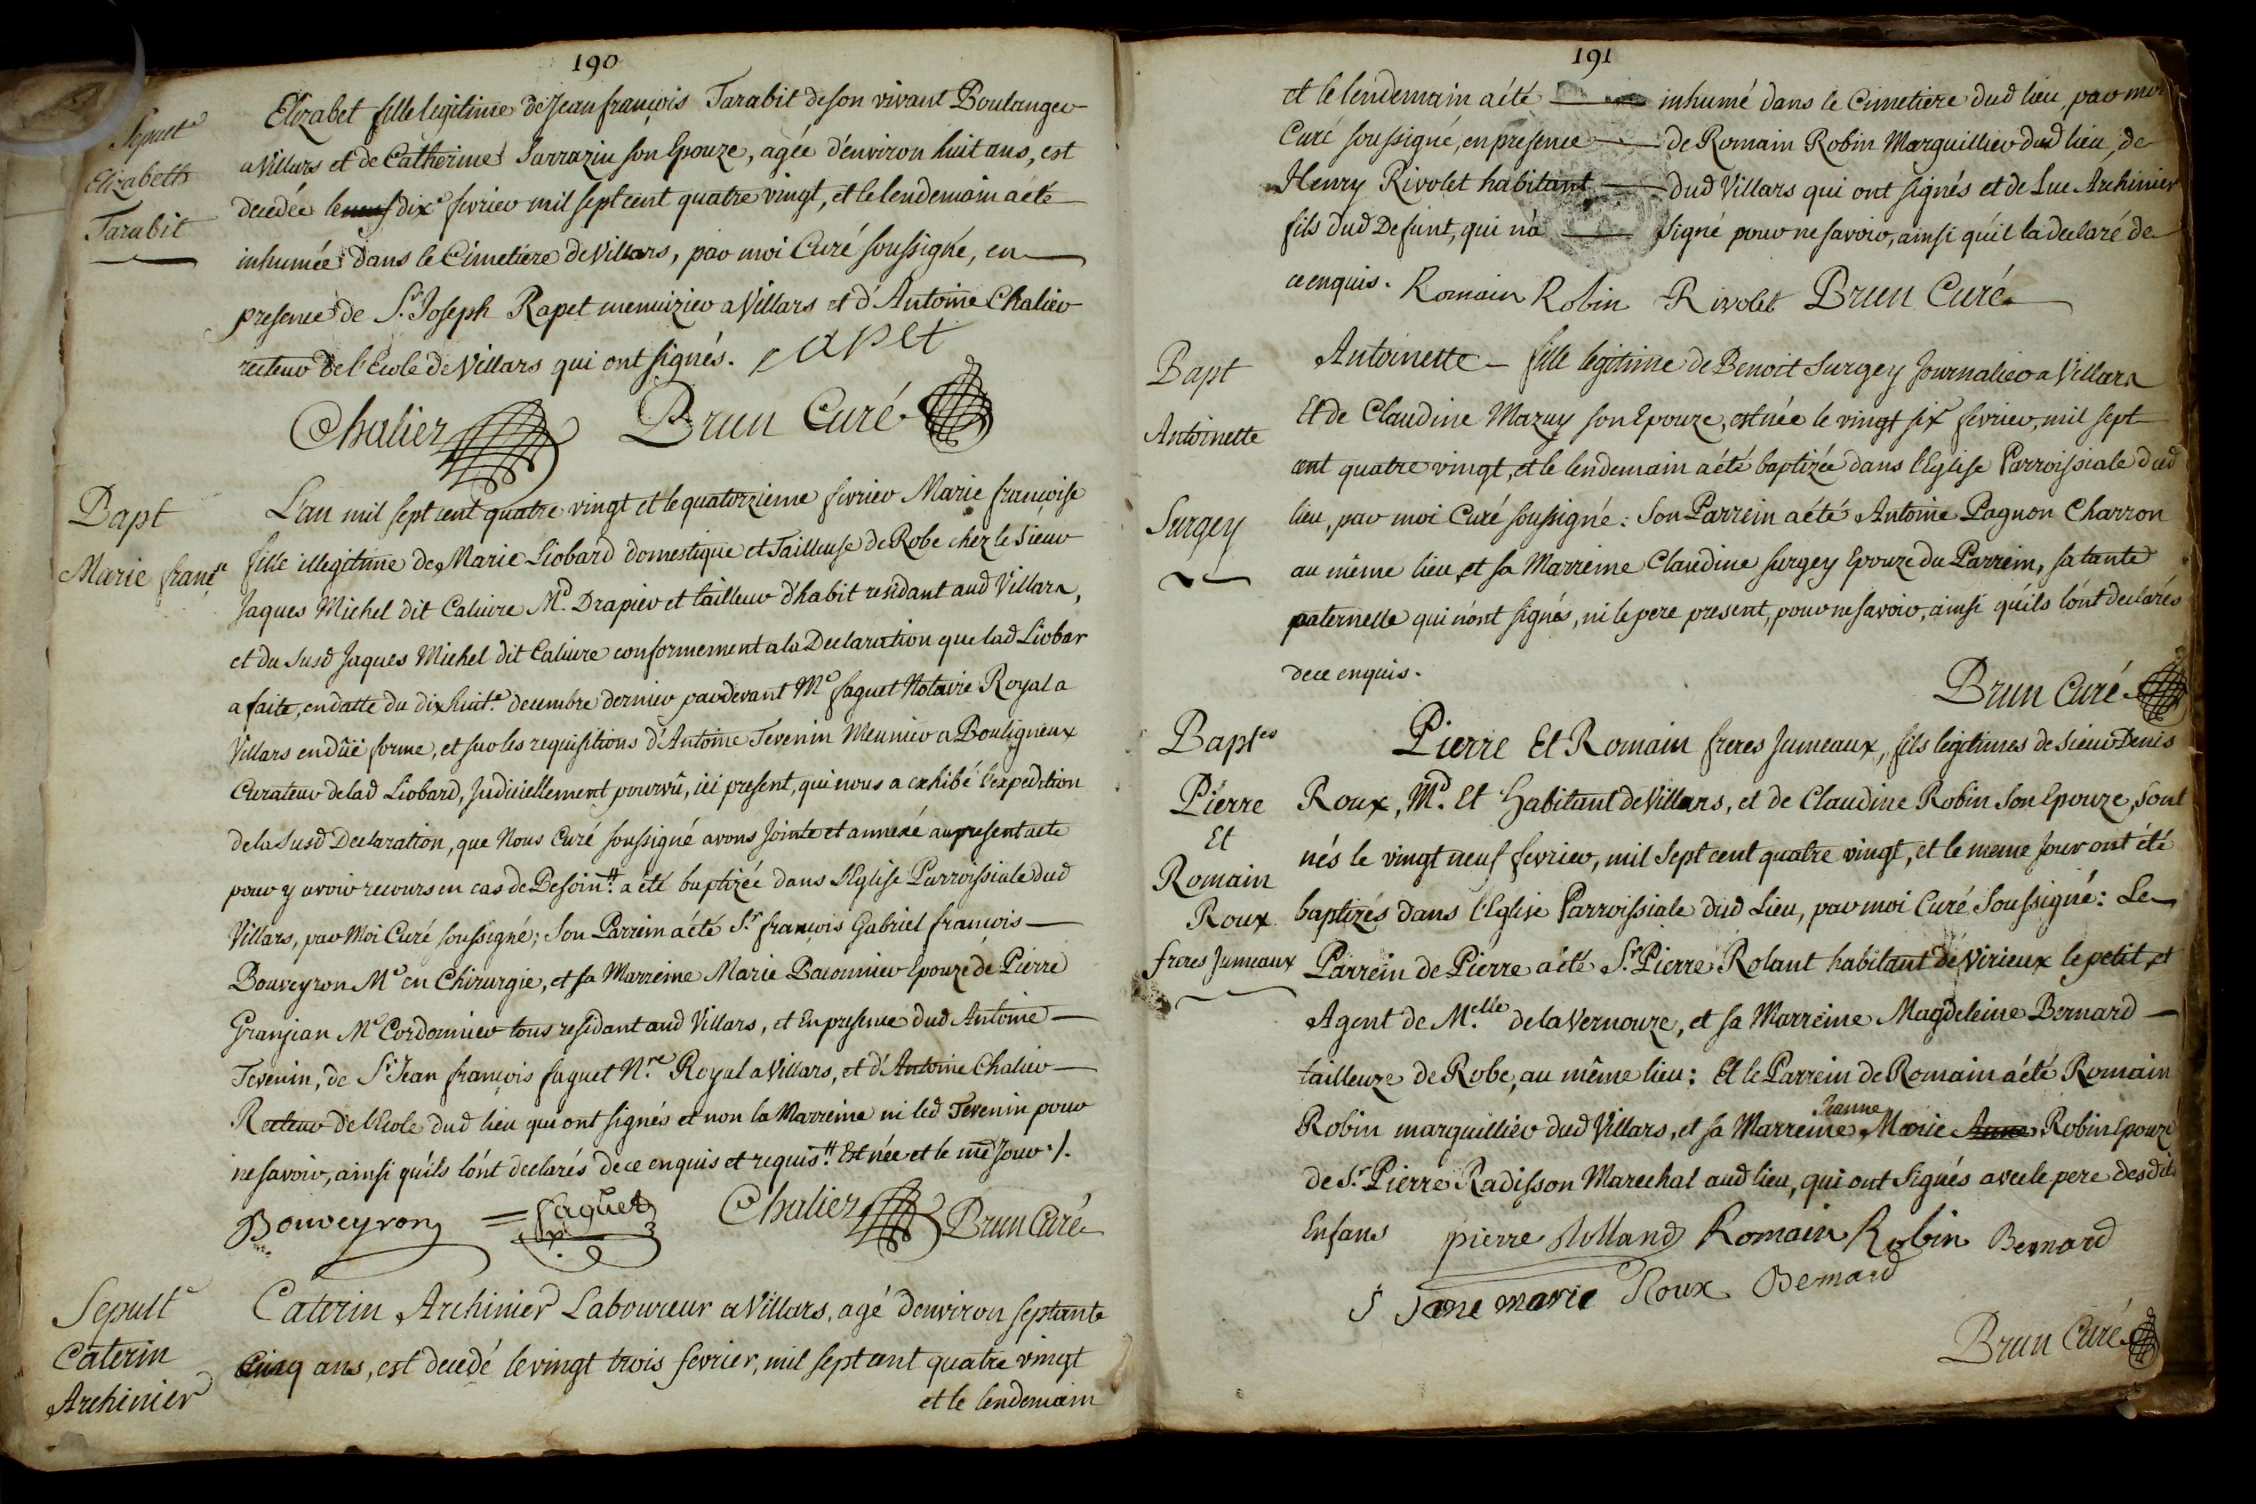 190
Sepult.e
Elizabeth
Tarabit
Elizabet fille legitime de Jean françois Tarabit de son vivant Boulanger
a Villars et de Catherine Sarrazin son Epouze, agée d'environ huit ans, est
decedée le neuf dix.e fevrier mil sept cent quatre vingt, et le lendemain a été
inhumée dans le Cimetiere de Villars, par moi Curé soussigné, en
presence de S.r Joseph Rapet menuizier a Villars et d'Antoine Chalier
recteur de l'Ecole de Villars qui ont signés. Rapet
Chalier Brun Curé
Bapt
Marie franç.se
L'an mil sept cent quatre vingt et le quatorzieme fevrier Marie françoise
fille illegitime de Marie Liobard domestique et Tailleuse de Robe chez le Sieur
Jaques Michel dit Caluire M.d Drapier et tailleur d'habit residant aud Villars,
et du susd Jaques Michel dit Caluire conformement a la Declaration que lad Liobar
a faite, en datte du dix huit.e decembre dernier pardevant M.e faguet Notaire Royal a
Villars en dûë forme, et sur les requisitions d'Antoine Tevenin Meunier a Bouligneux
Curateur de lad Liobard, Judiciellement pourvû, ici present, qui nous a exhibé l'expedition
de la susd Declaration, que Nous Curé soussigné avons jointe et annexé au present acte
pour y avoir recours en cas de Besoin.# a été baptizée dans l'Eglise Parroissiale dud
Villars, par Moi Curé soussigné; Son Parrein a été S.r françois Gabriel françois
Bouveyron M.e en Chirurgie, et sa Marreine Marie Bacounier Epouze de Pierre
Granjian M.e Cordonnier tous residant aud Villars, et En presence dud Antoine
Tevenin, de S.r Jean françois faguet N.re Royal a Villars, et d'Antoine Chalier
Recteur de l'Ecole dud lieu qui ont signés et non la Marreine ni led Tevenin pour
ne savoir, ainsi qu'ils l'ont declarés de ce enquis et requis.# Est née et le mê Jour ./.
Bouveyron = faguet Chalier Brun Curé
Sepult.e
Caterin
Archinier
Caterin Archinier Laboureur a Villars, agé d'environ septante
Cinq ans, est decedé le vingt trois fevrier, mil sept cent quatre vingt
et le lendemain
191
et le lendemain a été inhumé dans le Cimetiere dud lieu, par moi
Curé soussigné, en presence de Romain Robin Marguillier dud lieu, de
Henry Rivolet habitant dud Villars qui ont signés et de Luc Archinier
fils dud Defunt, qui n'a signé pour ne savoir, ainsi qu'il l'a declaré de
ce enquis. Romain Robin Rivolet Brun Curé
Bapt
Antoinette
Surgey
Antoinette fille legitime de Benoit Surgey Journalier a Villars
Et de Claudine Mazuy son Epouze, est née le vingt six fevrier, mil sept
cent quatre vingt, et le lendemain a été baptizée dans l'Eglise Parroissiale dud
lieu, par moi Curé soussigné: Son Parrein a été Antoine Pagnon Charron
au même lieu, et sa Marreine Claudine Surgey Epouze du Parrein, sa tante
paternelle qui n'ont signés, ni le pere present, pour ne savoir, ainsi qu'ils l'ont declarés
de ce enquis.
Brun Curé
Bapt.es
Pierre
Et
Romain
Roux
freres Jumeaux
Pierre Et Romain freres Jumeaux, fils legitimes de Sieur Denis
Roux, M.d Et Habitant de Villars, et de Claudine Robin son Epouze, sont
nés le vingt neuf fevrier, mil Sept cent quatre vingt, et le meme Jour ont été
baptizés dans l'Eglise Parroissiale dud Lieu, par moi Curé Soussigné: Le
Parrein de Pierre a été S.r Pierre Rolant habitant de Virieux le petit, et
Agent de M.elle de la Vernouze, et sa Marreine Magdeleine Bernard
tailleuze de Robe, au même lieu: Et le Parrein de Romain a été Romain
Robin marguillier dud Villars, et sa Marreine Jeanne Marie Anne Robin Epouze
de S.r Pierre Radisson Marechal aud lieu, qui ont signés avec le pere desdits
Enfans pierre Rolland Romain Robin Bernard
J Jane marie Roux Bernard
Brun Curé